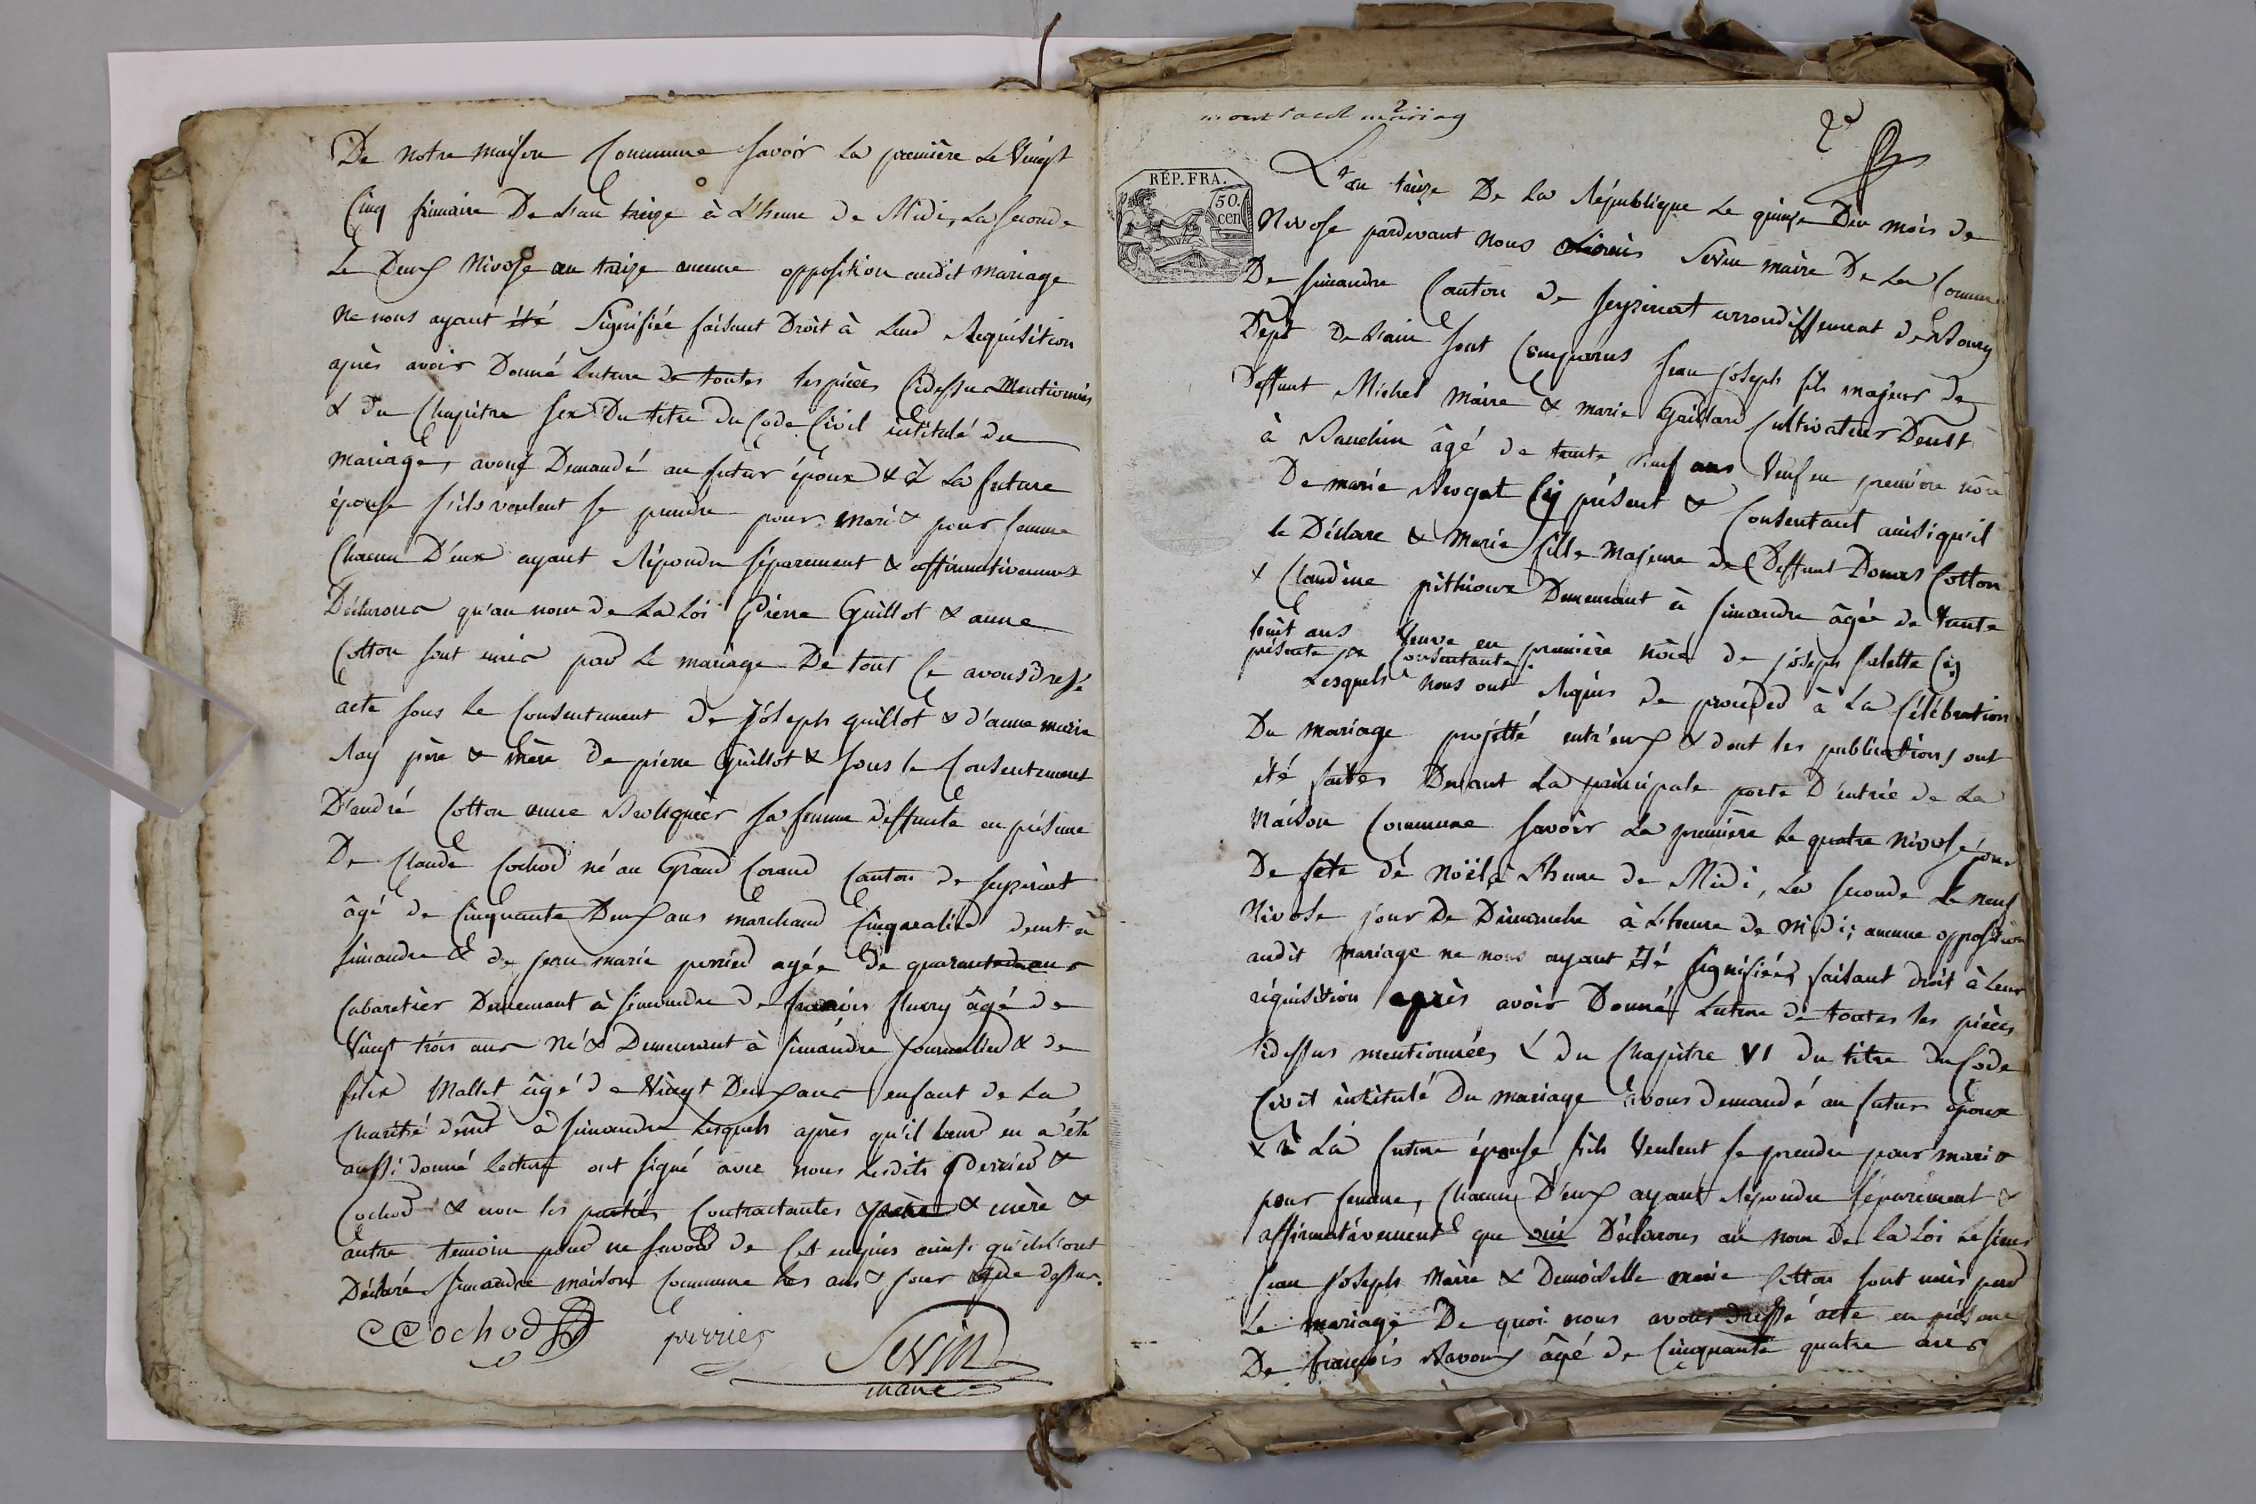 De notre maison Commune savoir La première Le Vingt
Cinq frimaire De L'an treize à L'heure de Midi, La seconde
Le Deux Nivose an treize aucune opposition audit mariage
ne nous ayant été Signifiée faisant Droit à Leur Requisition
après avoir Donné Lecture de toutes les pièces Cidessus Mentionnés
& du Chapitre six Du titre du Code Civil intitulé du
mariage, avons Demandé au futur époux & à La future
épouse s'ils veulent se prendre pour mari & pour femme
Chacun D'eux ayant Répondu séparement & affirmativement
Déclarons qu'au nom de La Loi Pierre Guillot & anne
Cotton sont unis par Le mariage De tout Ce avons dressé
acte sous Le Consentement de Joseph guillot & d'anne marie
Ray père & mère De pierre Guillot & sous Le Consentement
D'andré Cotton anne sa femme deffunte en présence
De Claude Cochod né au Grand Corand Canton de seyzériat
âgé de Cinquante Deux ans marchand demt à
simandre & de jean marie perrier agée de quarante deux ans
Cabaretier Demeurant à simandre de françois fleury âgé de
Vingt trois ans Né & Demeurant à simandre journalier & de
felix Mallet âgé de Vingt Deux ans enfant de La
Charité demt à simandre Lesquels après qu'il Leur en a été
aussi donné lecture ont signé avec nous Lesdits perrier &
Cochod & non les parties Contractantes père & mère &
autre temoin pour ne savoir de Ce enquis ainsi qu'ils l'ont
Déclaré simandre maison Commune Les ans & jour que dessus.
CCochod perrier Sevin
maire
2 mariag
2e
REP. FRA.
50. cen
L'an treize De La République Le quinze Du mois de
Nivose pardevant nous Sevin maire De La Commune
De simandre Canton de seyzériat arrondissement de Bourg
Dept De L'ain sont Comparus jean joseph fils majeur de
deffunt Michel Maire & marie Gaillard Cultivateur Demt
à âgé de trente neuf ans Veuf en première nôce
De marie Cy présent & Consentant ainsi qu'il
le Déclare & Marie fille majeure de Deffunt Cotton
& Claudine pithioux Demeurant à simandre âgée de trente
huit ans Veuve en première nôce de joseph Cy
présente & Consentante.
Lesquels nous ont Réquis de procéder à La Célébration
Du mariage projetté entr'eux & dont les publications ont
été faites Devant La principale porte D'entrée de La
Maison Commune savoir La première Le quatre Nivose jour
De fête de Noël à L'heure de Midi, La seconde Le neuf
Nivose jour De Dimanche à L'heure de midi; aucune opposition
audit mariage ne nous ayant été signifiée, faisant droit à Leur
réquisition après avoir Donné Lecture de toutes les pièces
Cidessus mentionnées & du Chapitre VI du titre du Code
Civil intitulé Du mariage avons demandé au futur époux
& à La future épouse s'ils Veulent se prendre pour mari &
pour femme, Chacun D'eux ayant Répondu séparément &
affirmativement que oui Déclarons au nom De La Loi Le sieur
jean joseph Maire & Demoiselle marie Cotton sont unis par
Le mariage De quoi nous avons dressé acte en présence
De françois âgé de Cinquante quatre ans